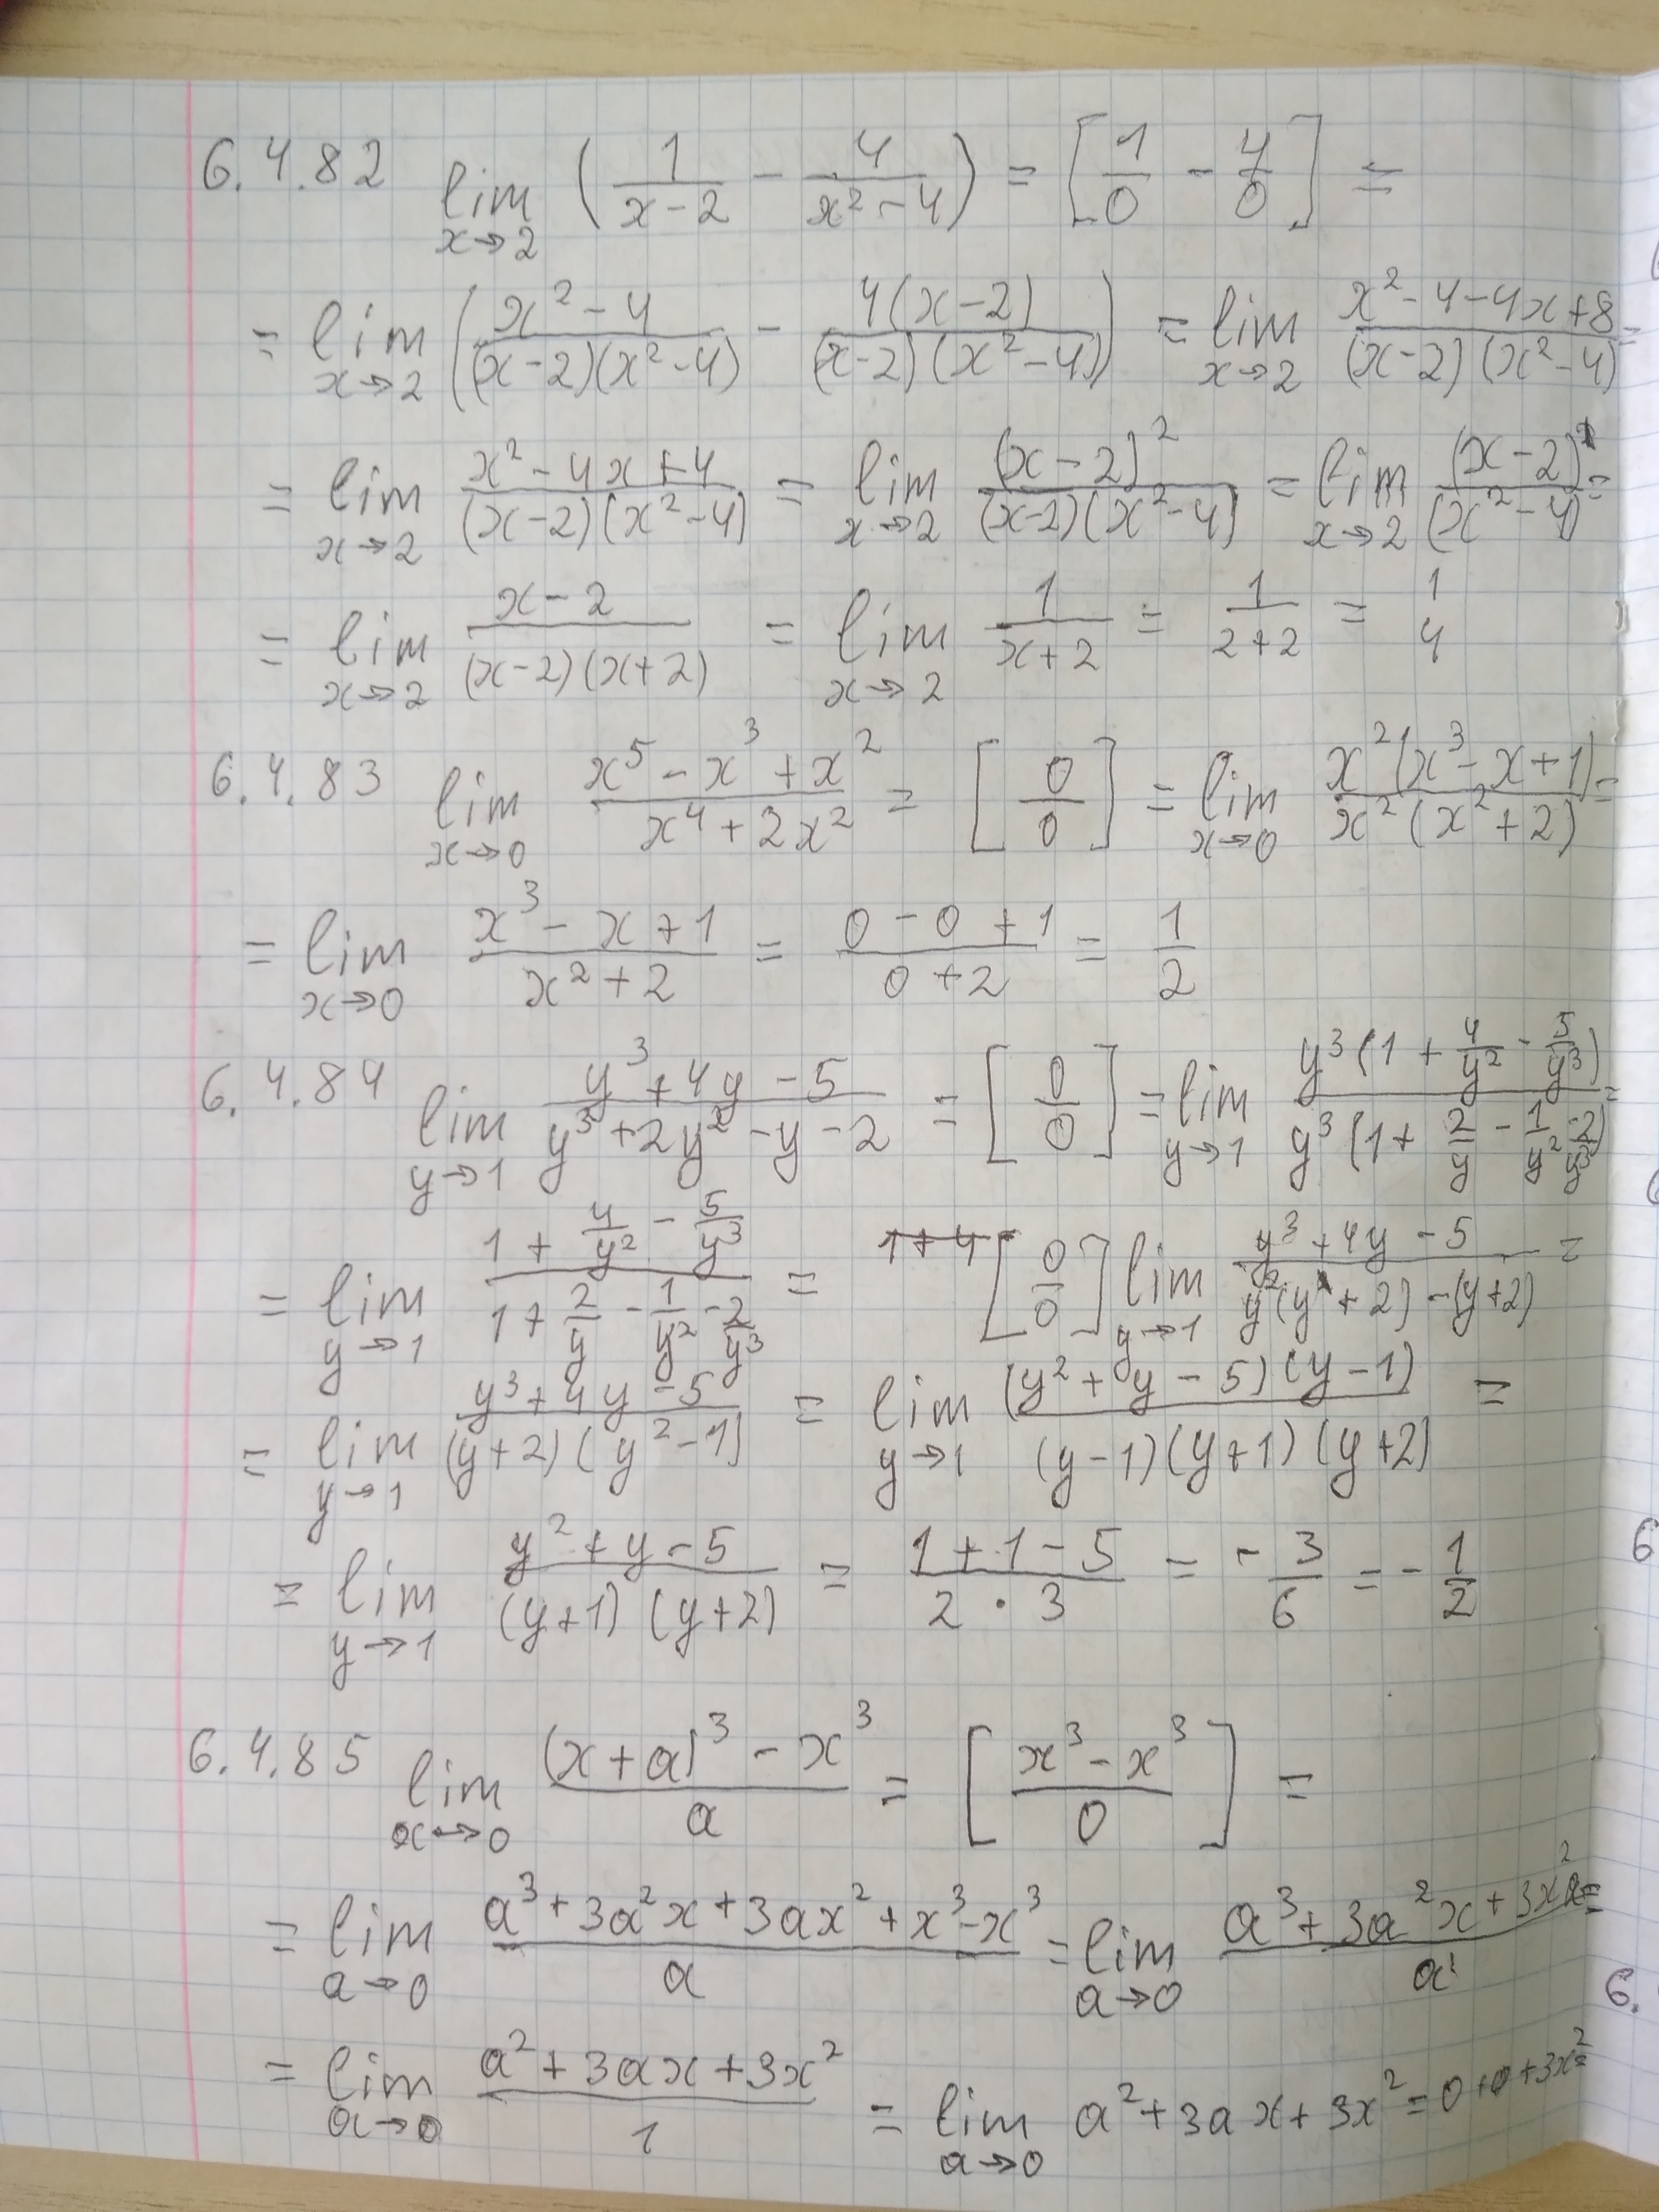 6.4.82 lim x→2 (1/(x-2) - 4/(x²-4)) = [1/0 - 4/0] =
= lim x→2 ((x²-4)/((x-2)(x²-4)) - 4(x-2)/((x-2)(x²-4))) = lim x→2 (x²-4-4x+8)/((x-2)(x²-4)) =
= lim x→2 (x²-4x+4)/((x-2)(x²-4)) = lim x→2 (x-2)²/((x-2)(x²-4)) = lim x→2 (x-2)/(x²-4) =
= lim x→2 (x-2)/((x-2)(x+2)) = lim x→2 1/(x+2) = 1/(2+2) = 1/4
6.4.83 lim x→0 (x⁵-x³+x²)/(x⁴+2x²) = [0/0] = lim x→0 x²(x³-x+1)/(x²(x²+2)) =
= lim x→0 (x³-x+1)/(x²+2) = (0-0+1)/(0+2) = 1/2
6.4.84 lim y→1 (y³+4y-5)/(y³+2y²-y-2) = [0/0] = lim y→1 y³(1+4/y²-5/y³)/(y³(1+2/y-1/y²-2/y³)) =
= lim y→1 (1+4/y²-5/y³)/(1+2/y-1/y²-2/y³) = 1+4 [0/0] lim y→1 (y³+4y-5)/(y²(y+2)-(y+2)) =
= lim y→1 (y³+4y-5)/((y+2)(y²-1)) = lim y→1 (y²+y-5)(y-1)/((y-1)(y+1)(y+2)) =
= lim y→1 (y²+y-5)/((y+1)(y+2)) = (1+1-5)/(2·3) = -3/6 = -1/2
6.4.85 lim x→0 ((x+a)³-x³)/a = [(x³-x³)/0] =
= lim a→0 (a³+3a²x+3ax²+x³-x³)/a = lim a→0 (a³+3a²x+3x²a)/a =
= lim a→0 (a²+3ax+3x²)/1 = lim a→0 a²+3ax+3x² = 0+0+3x²=